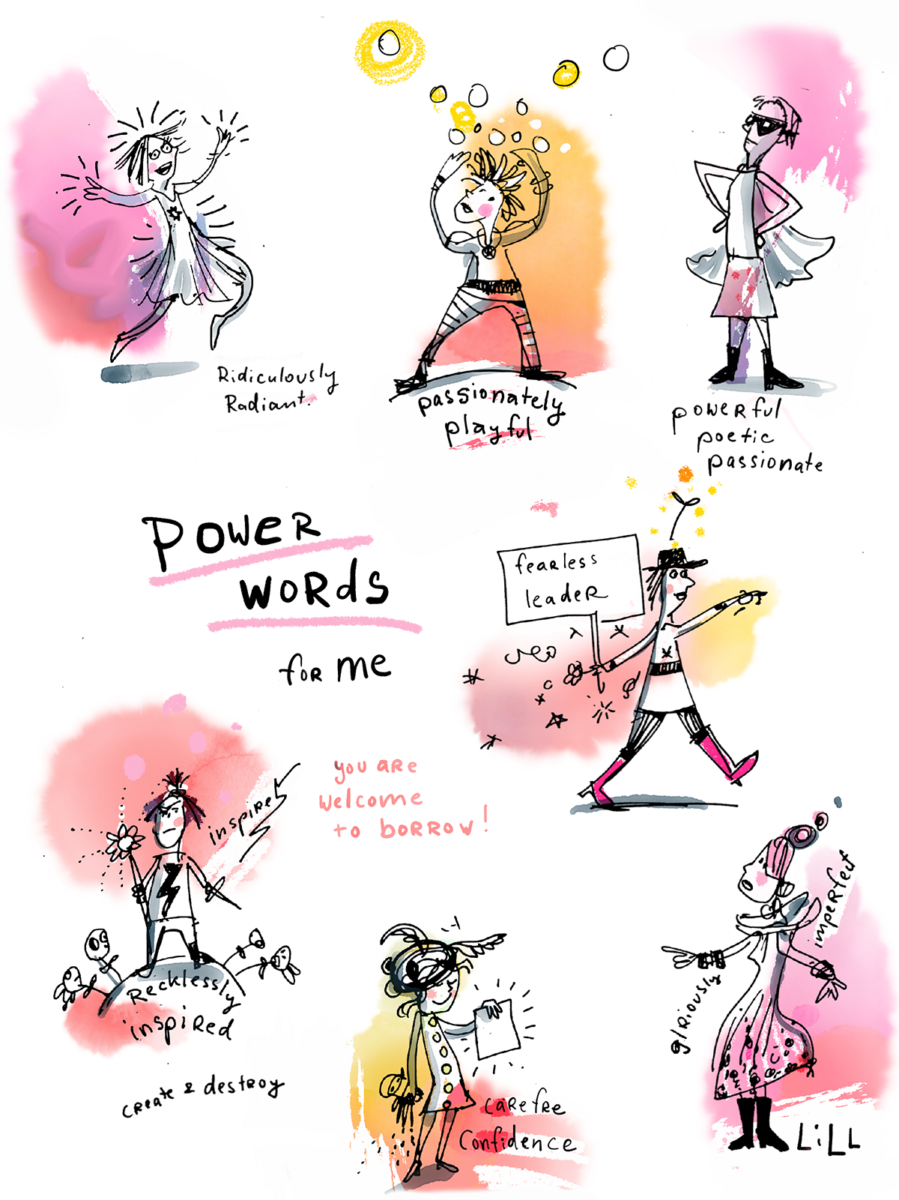 Ridiculously
Radiant.
passionately
playful
powerful
poetic
passionate
POWER
WORDS
for me
fearless
leader
you are
welcome
to borrow!
inspire
Recklessly
inspired
create & destroy
carefre
Confidence
gloriously
imperfect
LiLL